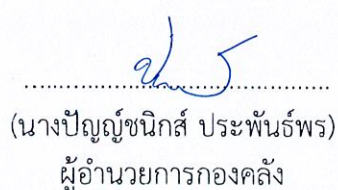 (นางปัญญ์ชนิกส์ ประพันธ์พร)
ผู้อำนวยการกองคลัง